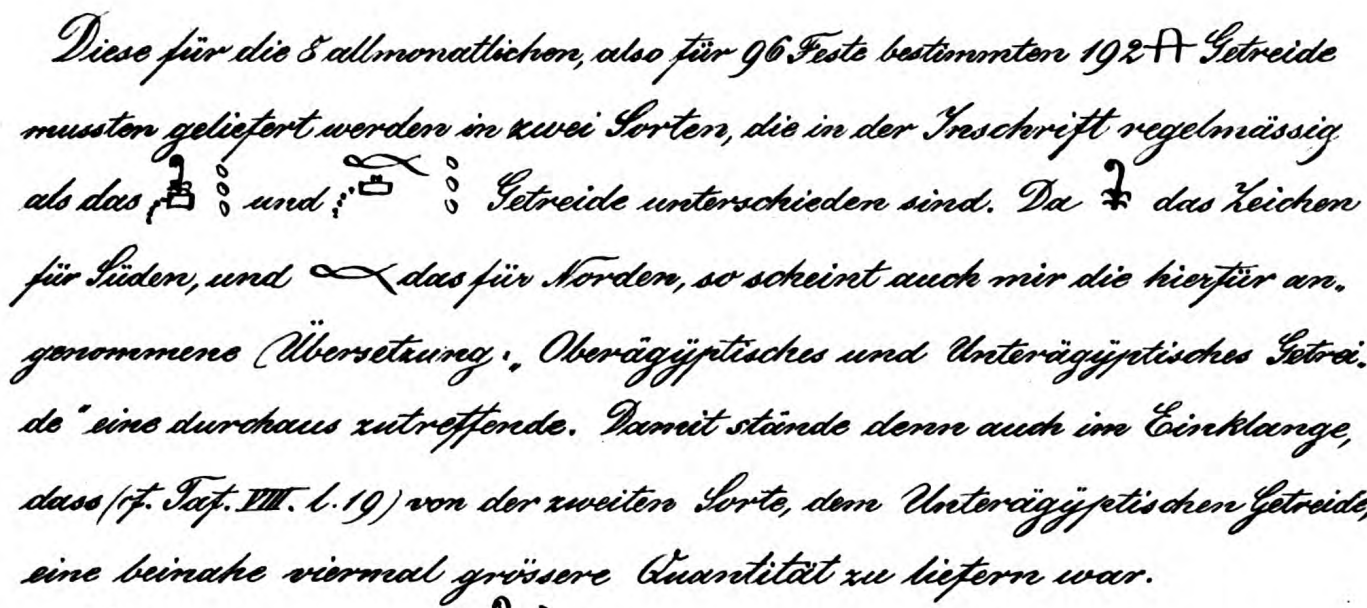 Diese für die 8 allmonatlichen, also für 96 Feste bestimmten 192 Getreide
mussten geliefert werden in zwei Sorten, die in der Inschrift regelmässig
als das und Getreide unterschieden sind. Da das Zeichen
für Süden, und das für Norden, so scheint auch mir die hierfür an-
genommene Übersetzung: „Oberägÿptisches und Unterägÿptisches Getrei-
de“ eine durchaus zutreffende. Damit stände denn auch im Einklange,
dass (cf. Taf. VIII. l. 19) von der zweiten Sorte, dem Unterägÿptischen Getreide,
eine beinahe viermal grössere Quantität zu liefern war.